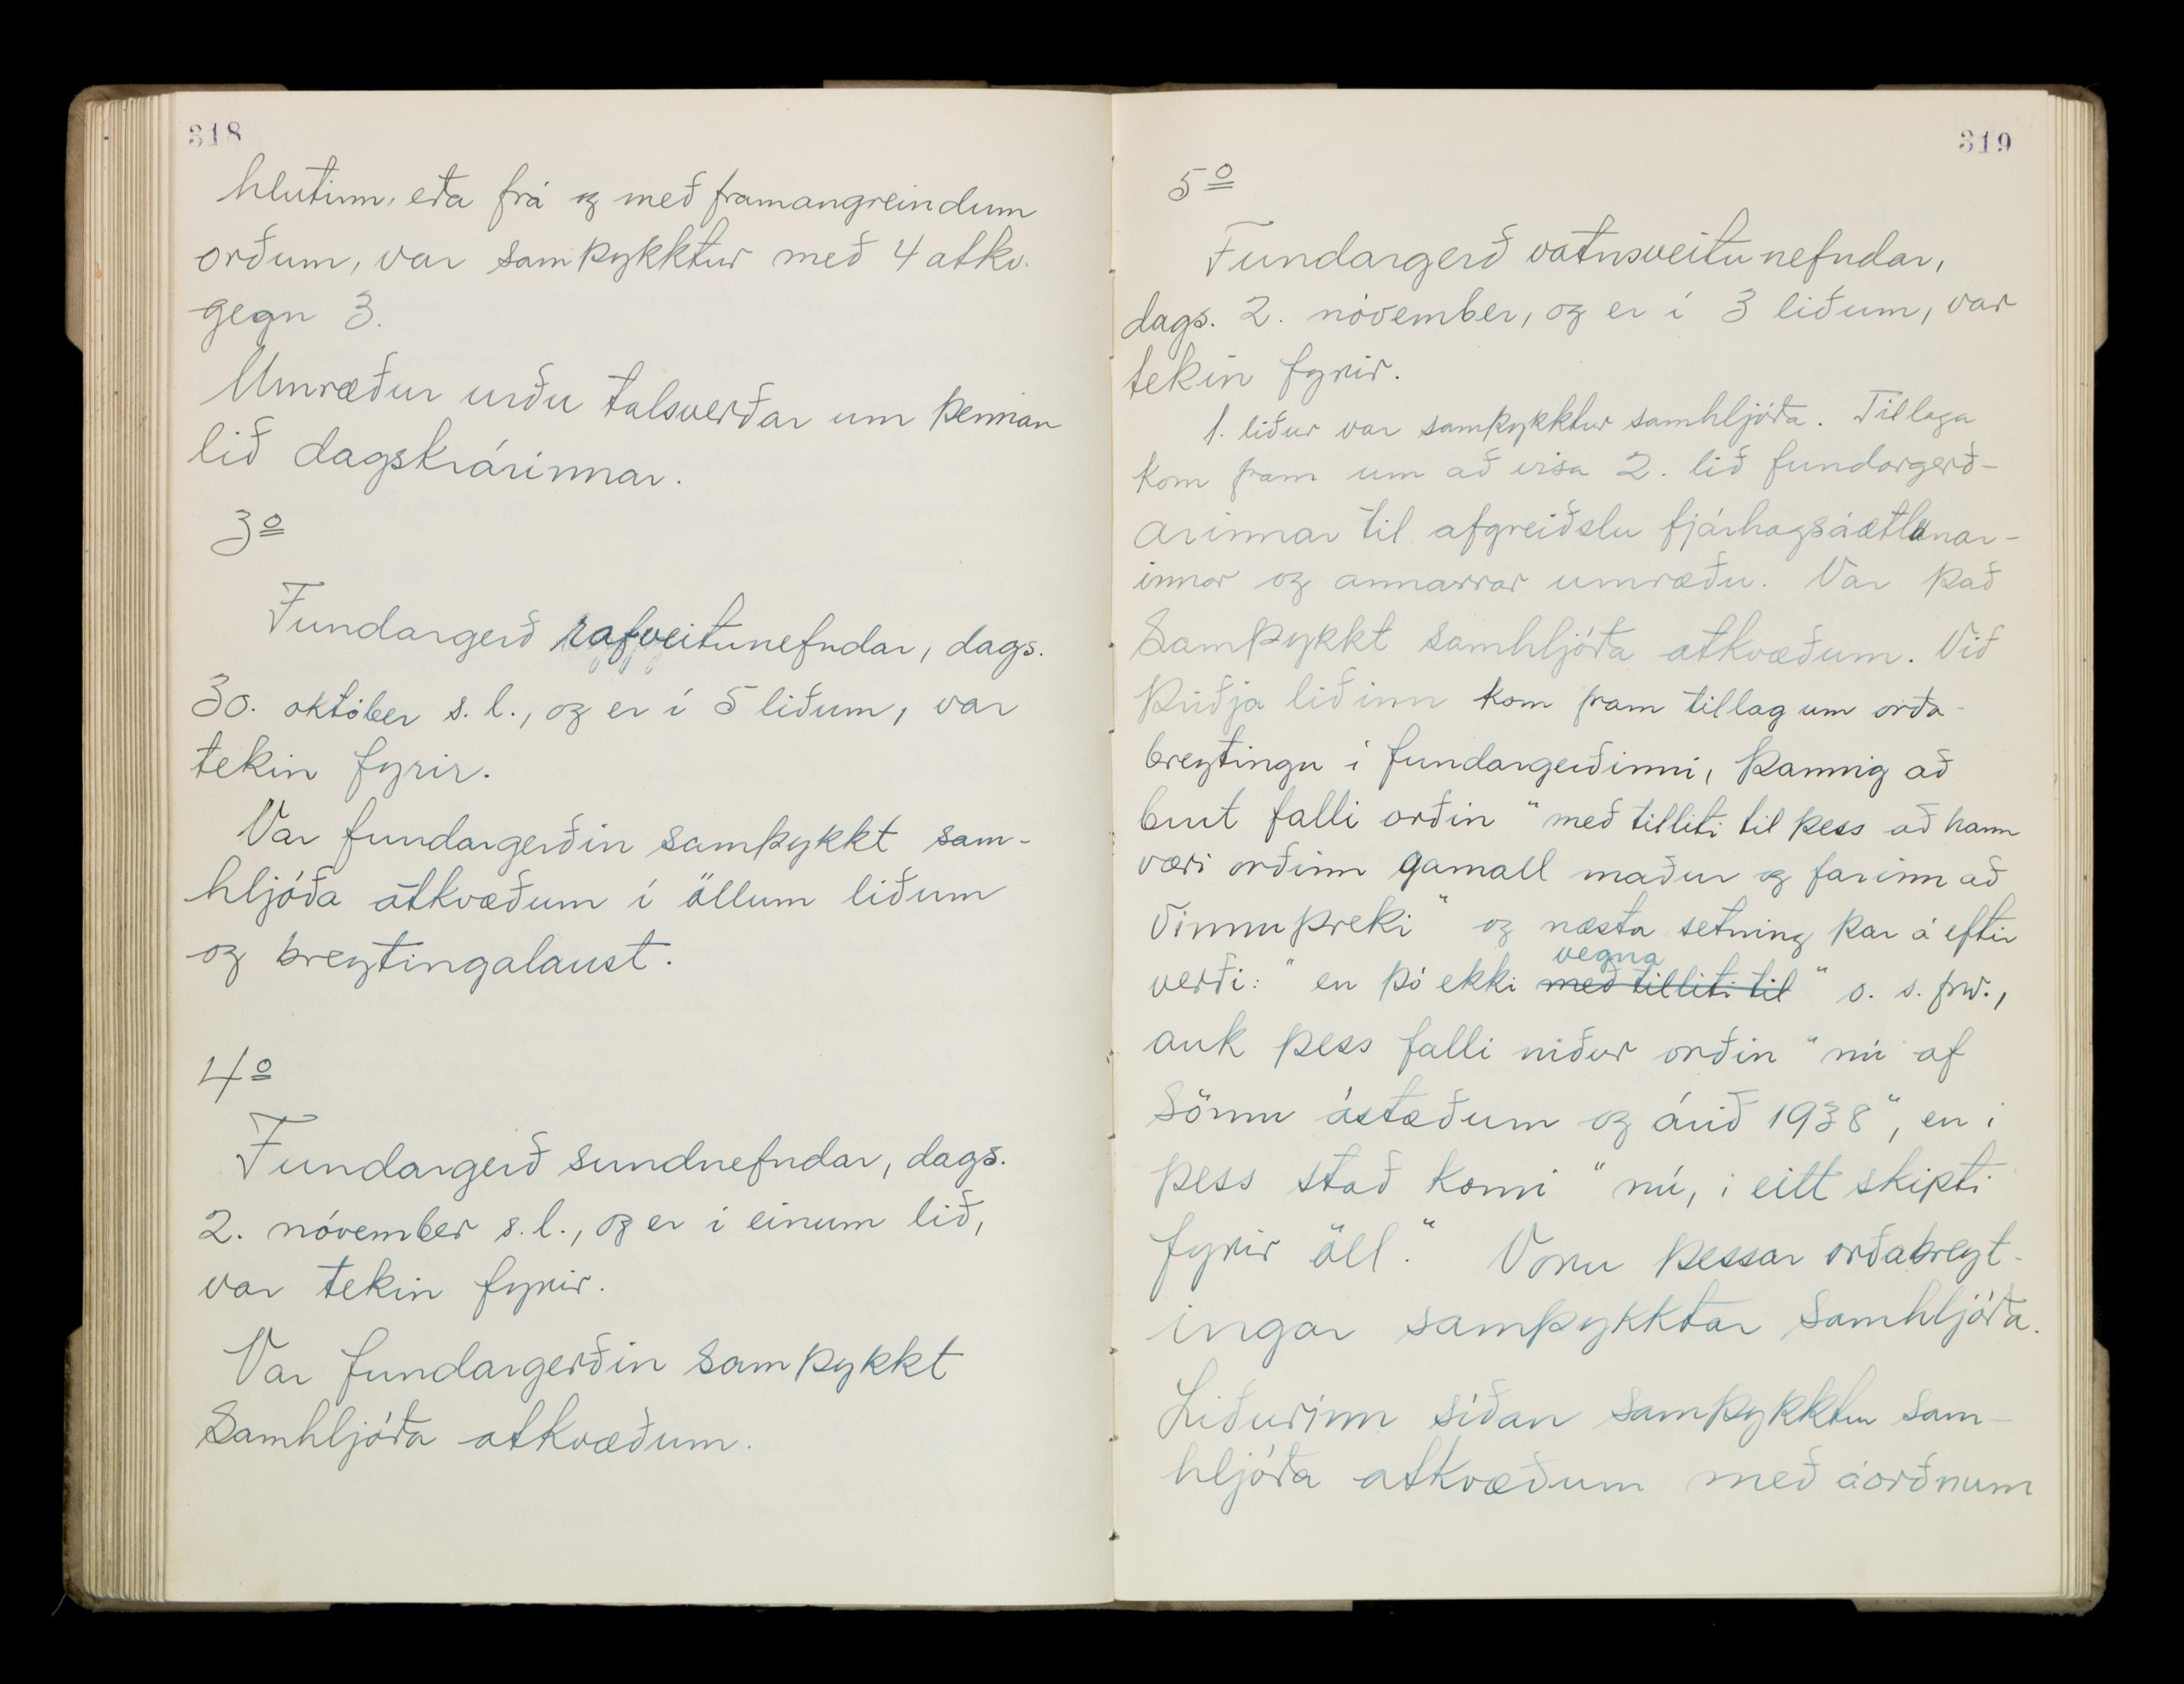 318
hlutinn, eða frá og með framangreindum
orðum, var samþykktur með 4 atkv.
gegn 3.
Umræður urðu talsverðar um þennan
lið dagskrárinnar.
3º
Fundargerð rafveitunefndar, dags.
30. október s.l., og er í 5 liðum, var
tekin fyrir.
Var fundargerðin samþykkt sam-
hljóða atkvæðum í öllum liðum
og breytingalaust.
4º
Fundargerð sundnefndar, dags.
2. nóvember s.l., og er í einum lið,
var tekin fyrir.
Var fundargerðin samþykkt
samhljóða atkvæðum.
319
5º
Fundargerð vatnsveitunefndar,
dags. 2. nóvember, og er í 3 liðum, var
tekin fyrir.
1. liður var samþykktur samhljóða. Tillaga
kom fram um að vísa 2. lið fundargerð-
arinnar til afgreiðslu fjárhagsáætlunar-
innar og annarrar umræðu. Var það
samþykkt samhljóða atkvæðum. Við
þriðja liðinn kom fram tillag um orða-
breytingu í fundargerðinni, þannig að
burt falli orðin "með tilliti til þess að hann
væri orðinn gamall maður og farinn að
vinnuþreki" og næsta setning þar á eftir
vegna
verði: "en þó ekki með tilliti til" o. s. frv.,
auk þess falli niður orðin "nú af
sömu ástæðum og árið 1938", en í
þess stað komi "nú, í eitt skipti
fyrir öll." Voru þessar orðabreyt-
ingar samþykktar samhljóða.
Liðurinn síðan samþykktur sam-
hljóða atkvæðum með áorðnum